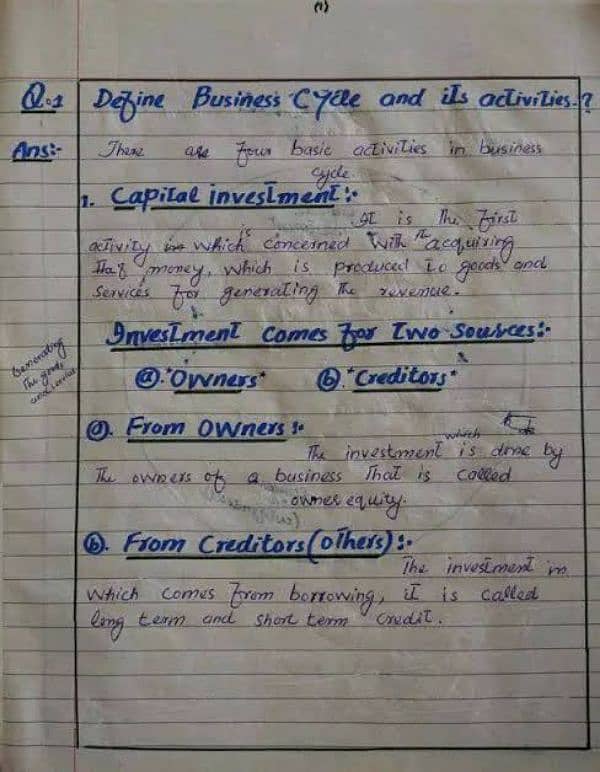 (1)
Q.1 Define Business Cycle and its activities.?
Ans:- There are four basic activities in business
cycle.
1. Capital investment:-
It is the first
activity in which is concerned with the acquiring
that money, which is produced to goods and
services for generating the revenue.
Investment comes for two sources:-
(a). "Owners" (b). "Creditors"
Generating
the goods
and
(a). From Owners:-
The investment which is done by
the owners of a business that is called
owner equity.
(b). From Creditors (others):-
The investment in
which comes from borrowing, it is called
long term and short term credit.